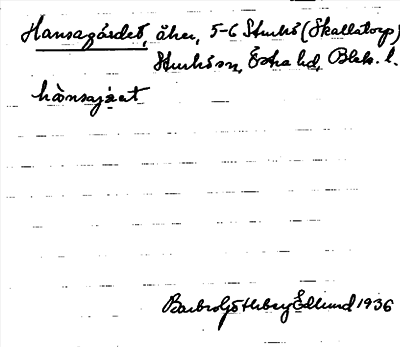 Hansagärdet, åker, 5-6 Sturkö (Skallatorp)
Sturkö sn, Östra hd, Blek. l.
hànsajæat
Barbro Götheberg Edlund 1936